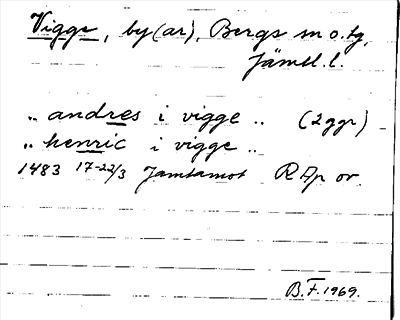 Vigge, by(ar), Bergs sn o. tg,
Jämtl. l.
„ andres i vigge „ (2 ggr)
„ henric i vigge „
1483 17-22/3 Jamtamot R Ap or.
B.F. 1969.